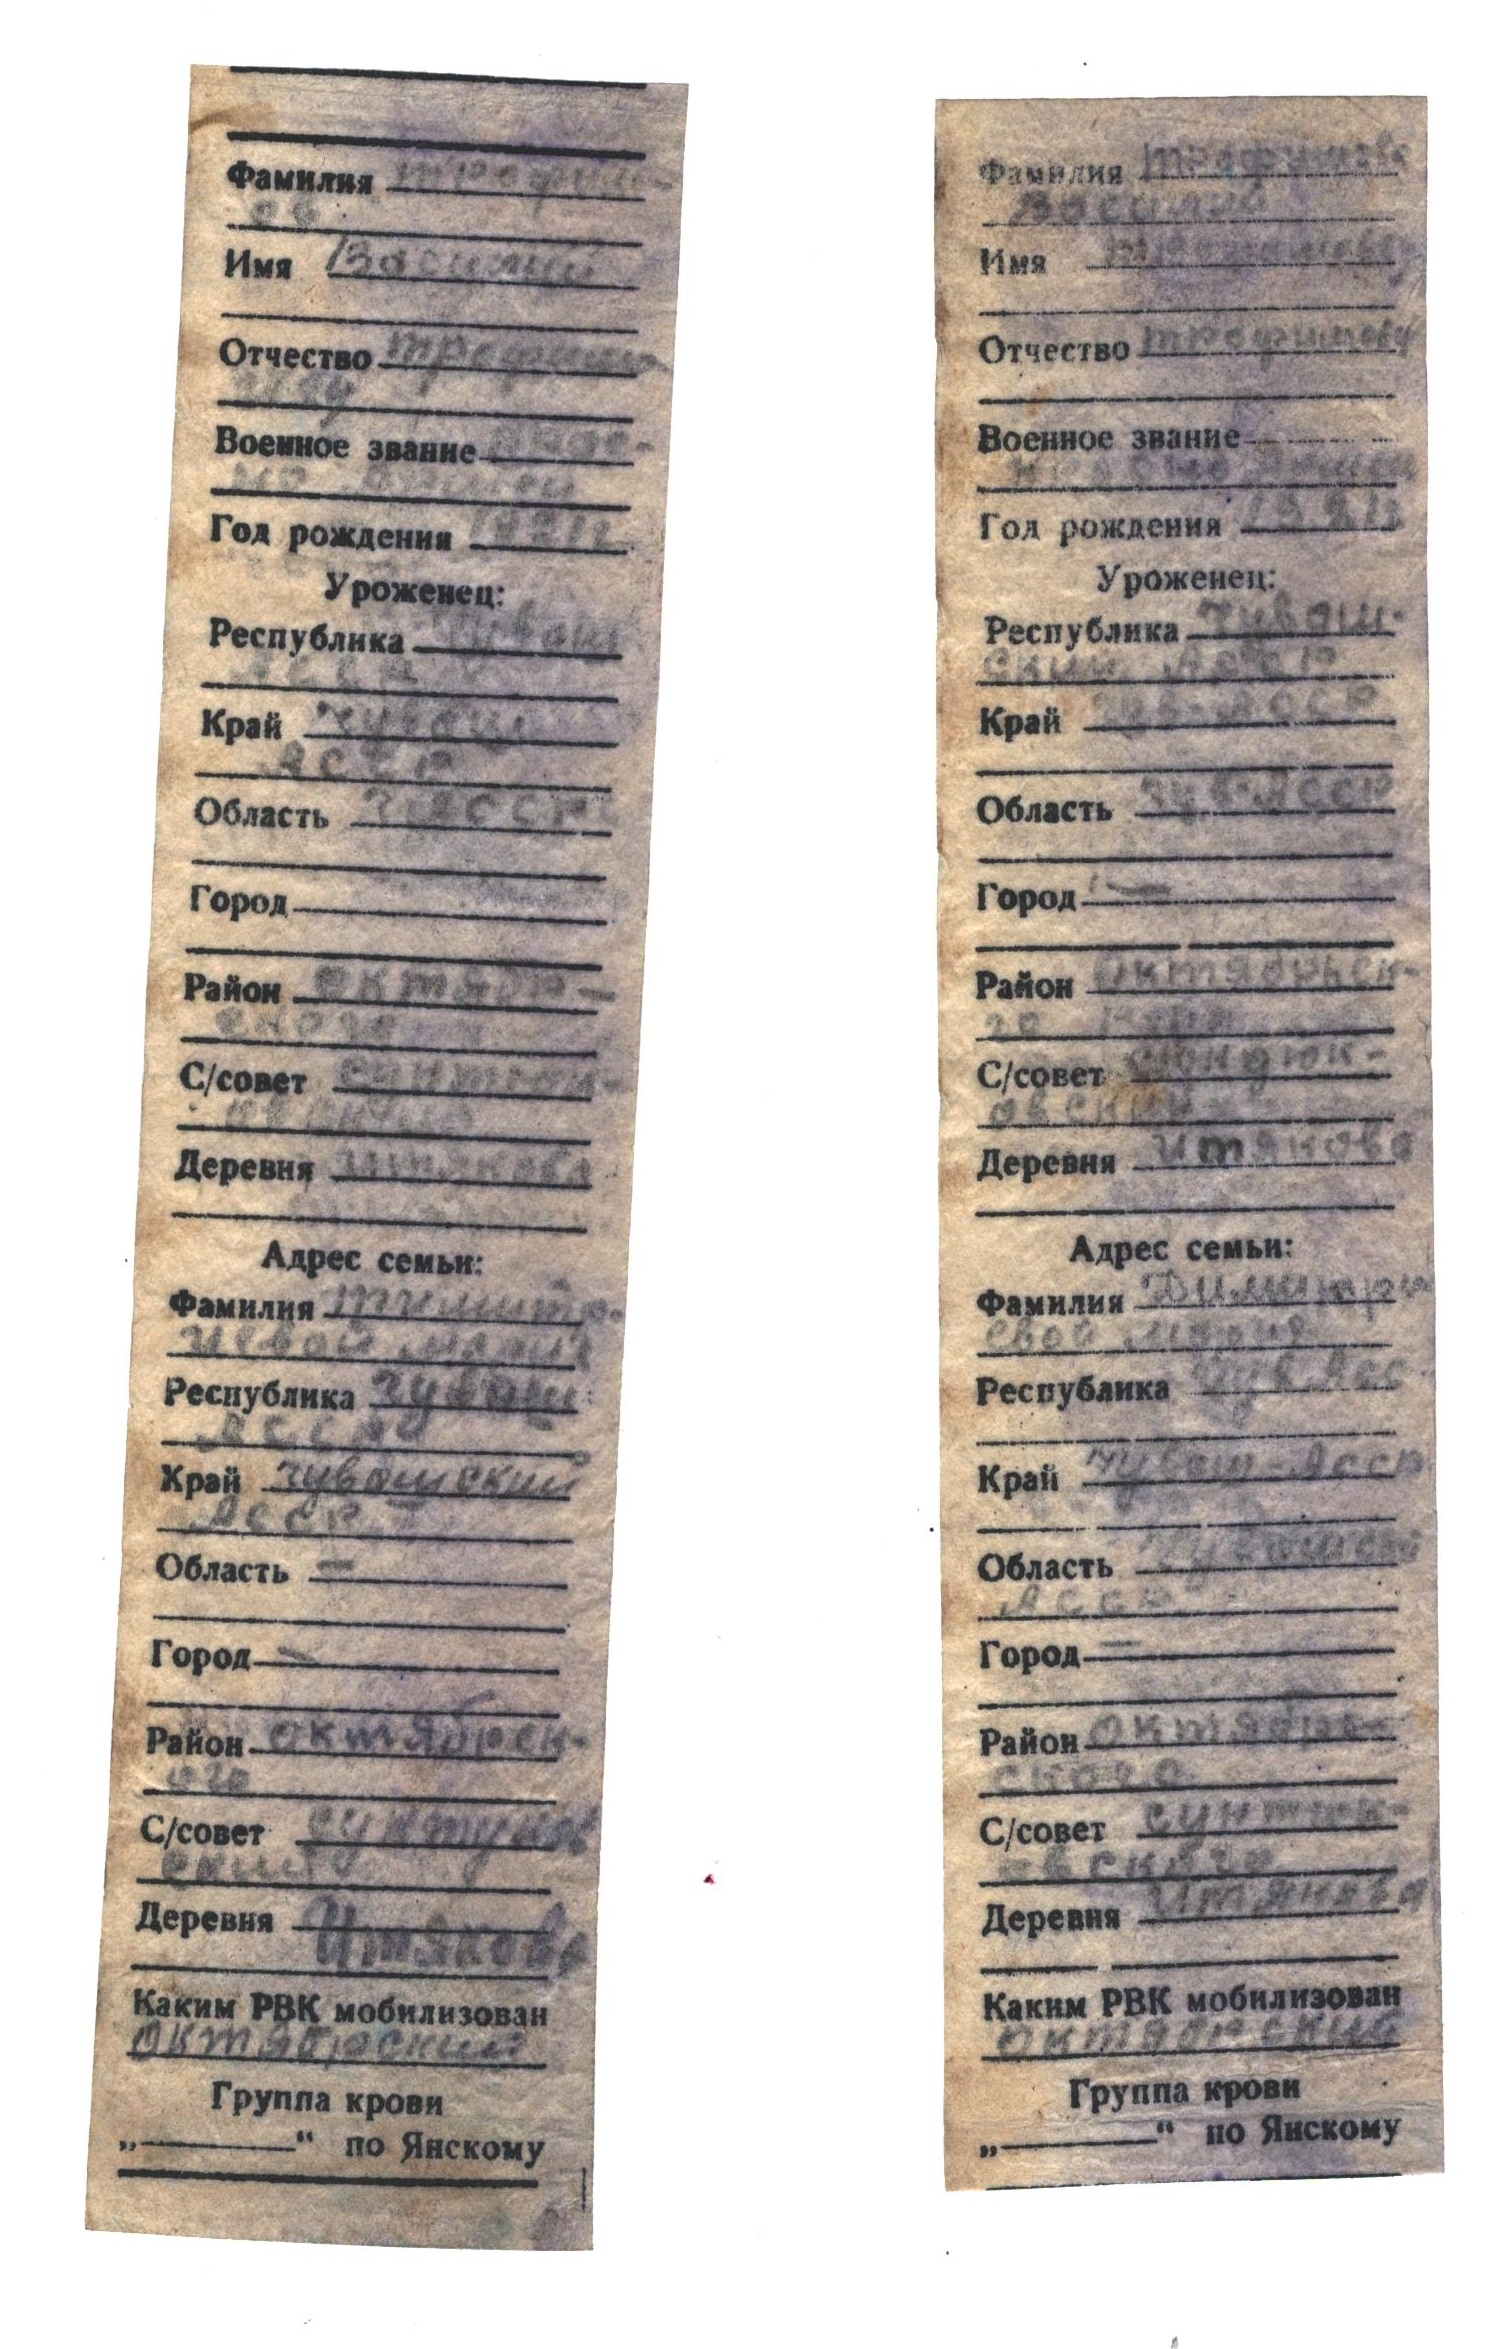 Фамилия Трофим-
ов
Имя Василий
Отчество Трофимо
Военное звание крас-
но армеец
Год рождения 1921г
Уроженец:
Республика Чуваш
АССР
Край Чуваш
АССР
Область Ч.АССР
Город
Район Октябр-
ского
С/совет
Деревня Итякова
Адрес семьи:
Фамилия
Республика Чуваш
АССР
Край Чувашский
АССР
Область —
Город —
Район Октябрск-
ого
С/совет
Деревня Итякова
Каким РВК мобилизован
Октябрский
Группа крови
„ “ по Янскому
Фамилия Трофимов
Василий
Имя
Отчество Трофимович
Военное звание
красно армеец
Год рождения 1921г
Уроженец:
Республика Чуваш-
ский АССР
Край Чув-АССР
Область Чув-АССР
Город —
Район Октябрьск-
С/совет
овский
Деревня Итякова
Адрес семьи:
Фамилия Димитри
евой Мария
Республика Чув Асс
Край Чуваш-Асср
Область
АССР
Город —
Район Октябр-
ского
С/совет Сунтик-
овского
Деревня Итякова
Каким РВК мобилизован
Октябрский
Группа крови
„ “ по Янскому